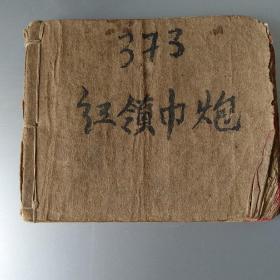 373
红领巾炮